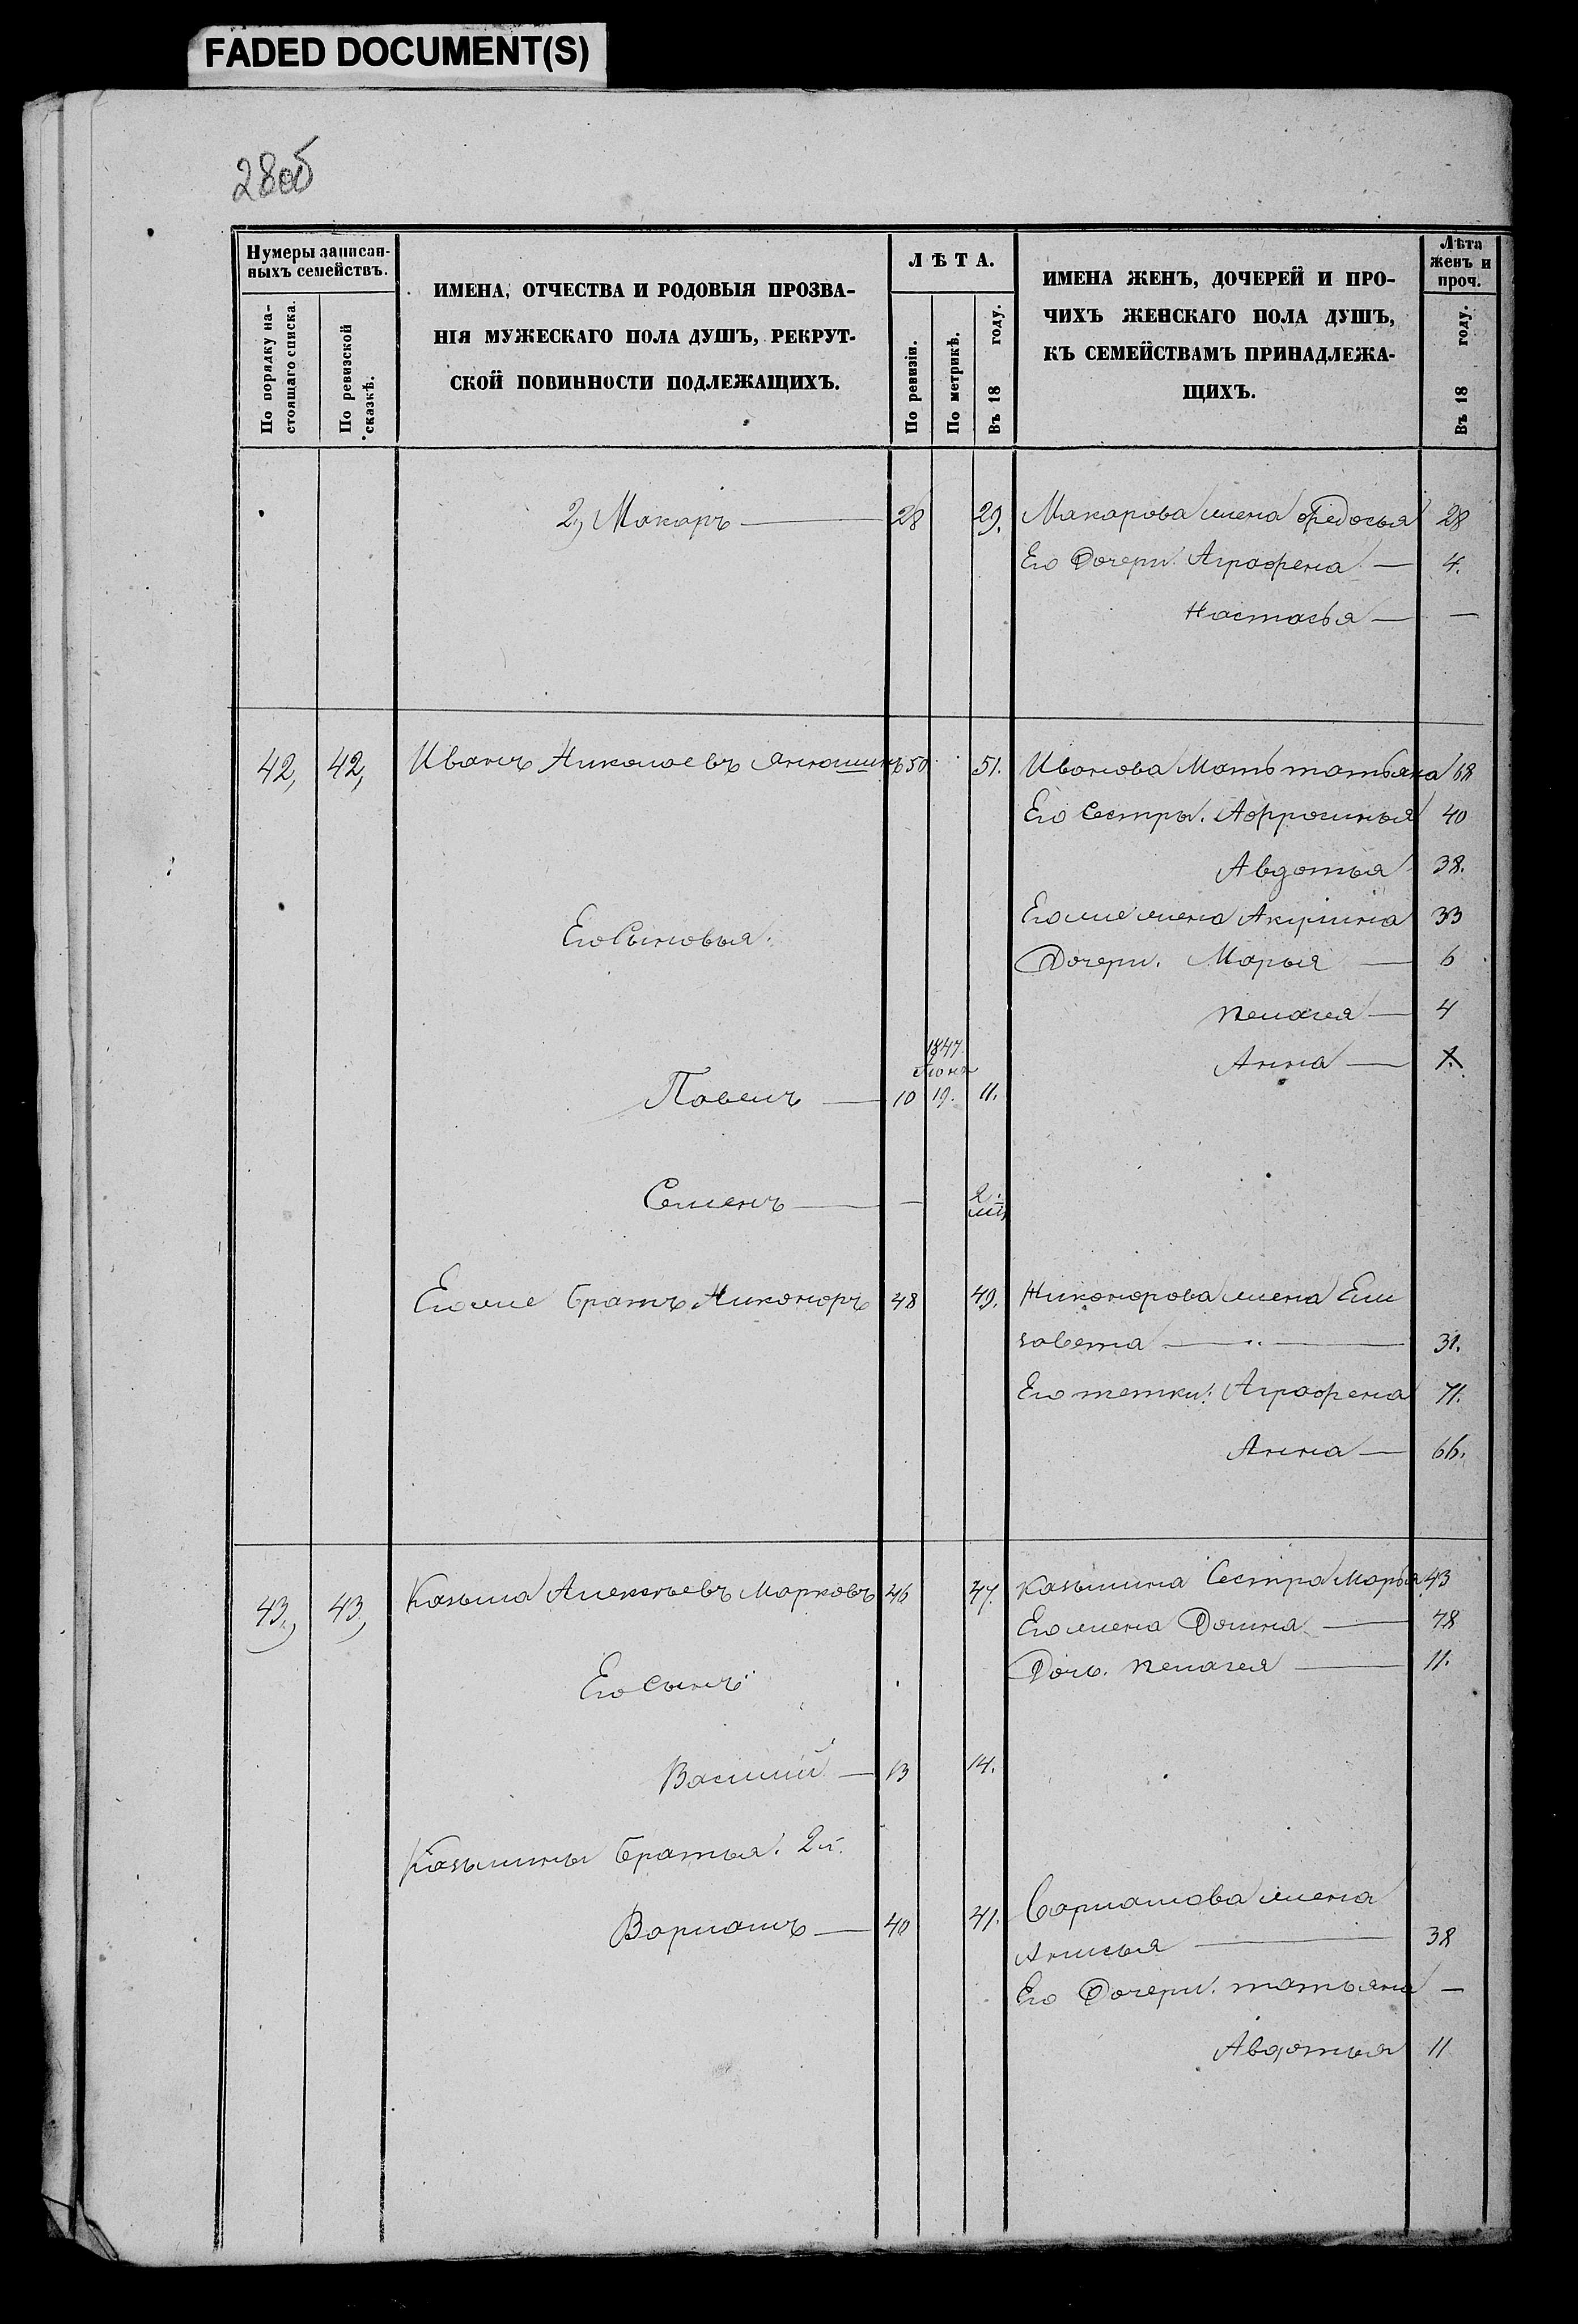 FADED DOCUMENT(S)
28об
Нумеры записан-
ныхъ семействъ.
По порядку на-
стоящаго списка.
По ревизской
сказкѣ.
ИМЕНА, ОТЧЕСТВА И РОДОВЫЯ ПРОЗВА-
НІЯ МУЖЕСКАГО ПОЛА ДУШЪ, РЕКРУТ-
СКОЙ ПОВИННОСТИ ПОДЛЕЖАЩИХЪ.
ЛѢТА.
По ревизіи.
По метрикѣ.
Въ 18 году.
ИМЕНА ЖЕНЪ, ДОЧЕРЕЙ И ПРО-
ЧИХЪ ЖЕНСКАГО ПОЛА ДУШЪ,
КЪ СЕМЕЙСТВАМЪ ПРИНАДЛЕЖА-
ЩИХЪ.
Лѣта
женъ и
проч.
Въ 18 году.
2, Макаръ — 28 29. Макарова жена Федосья 28
Его Дочери: Аграфена — 4.
Настасья — —
42, 42, Иванъ Николаевъ Янюшинъ 50 51. Иванова Мать татьяна 68
Его Сестры. Афросинья 40
Авдотья 38.
Его же жена Акулина 33
Его Сыновья.
Дочери. Марья — 6
пелагея — 4
Анна — 1.
1847
Июня
Павелъ — 10 19. 11.
Семенъ — — 2.
Его же братъ Никоноръ 48 49. Никонорова жена Ели
завета — 31.
Его тетки: Аграфена 71.
Анна — 66.
43, 43, Казьма Алексѣевъ Марковъ 46 47. Казьмина Сестра Марья 43
Его жена Домна — 48
Дочь. пелагея — 11.
Его сынъ
Василий — 13 14.
Казьмины братья. 2й.
Варламъ — 40 41. Варламова жена
Анисья — 38
Его Дочери. татьяна —
Авдотья 11